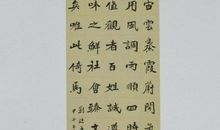 宙雲蒸霞蔚
用風調雨順四時
值觀者百姓誠道
味之鮮社會臻
矣唯此倚馬